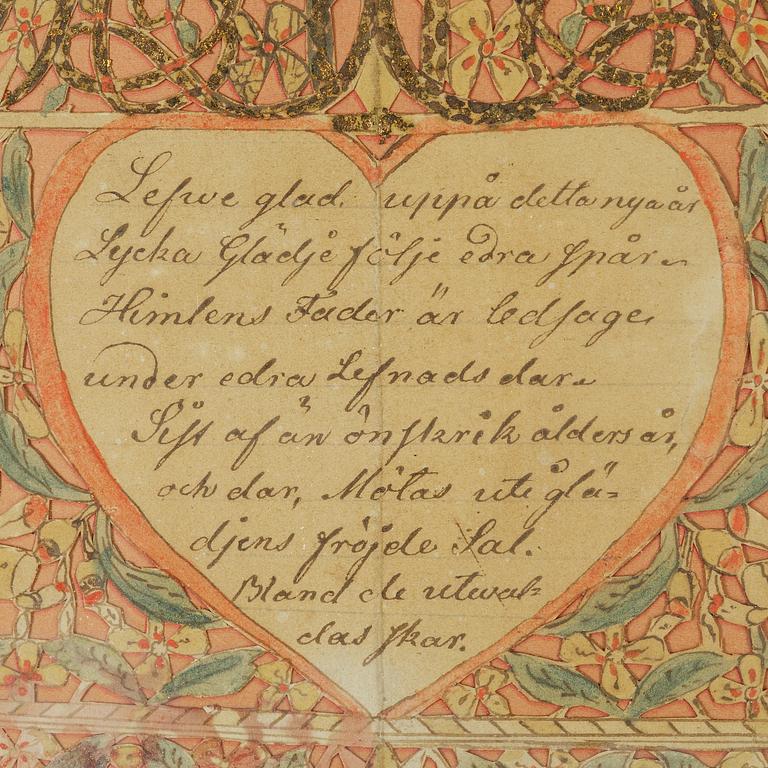 Lefwe glad. uppå detta nya år
Lycka Glädje följe edra spår
Himlens Fader är ledsage
under edra Lefnads dar
Sist af än önskrik ålders år,
och dar, Mötas uti glä=
djens fröjde Sal.
Bland de utwal=
das skar.